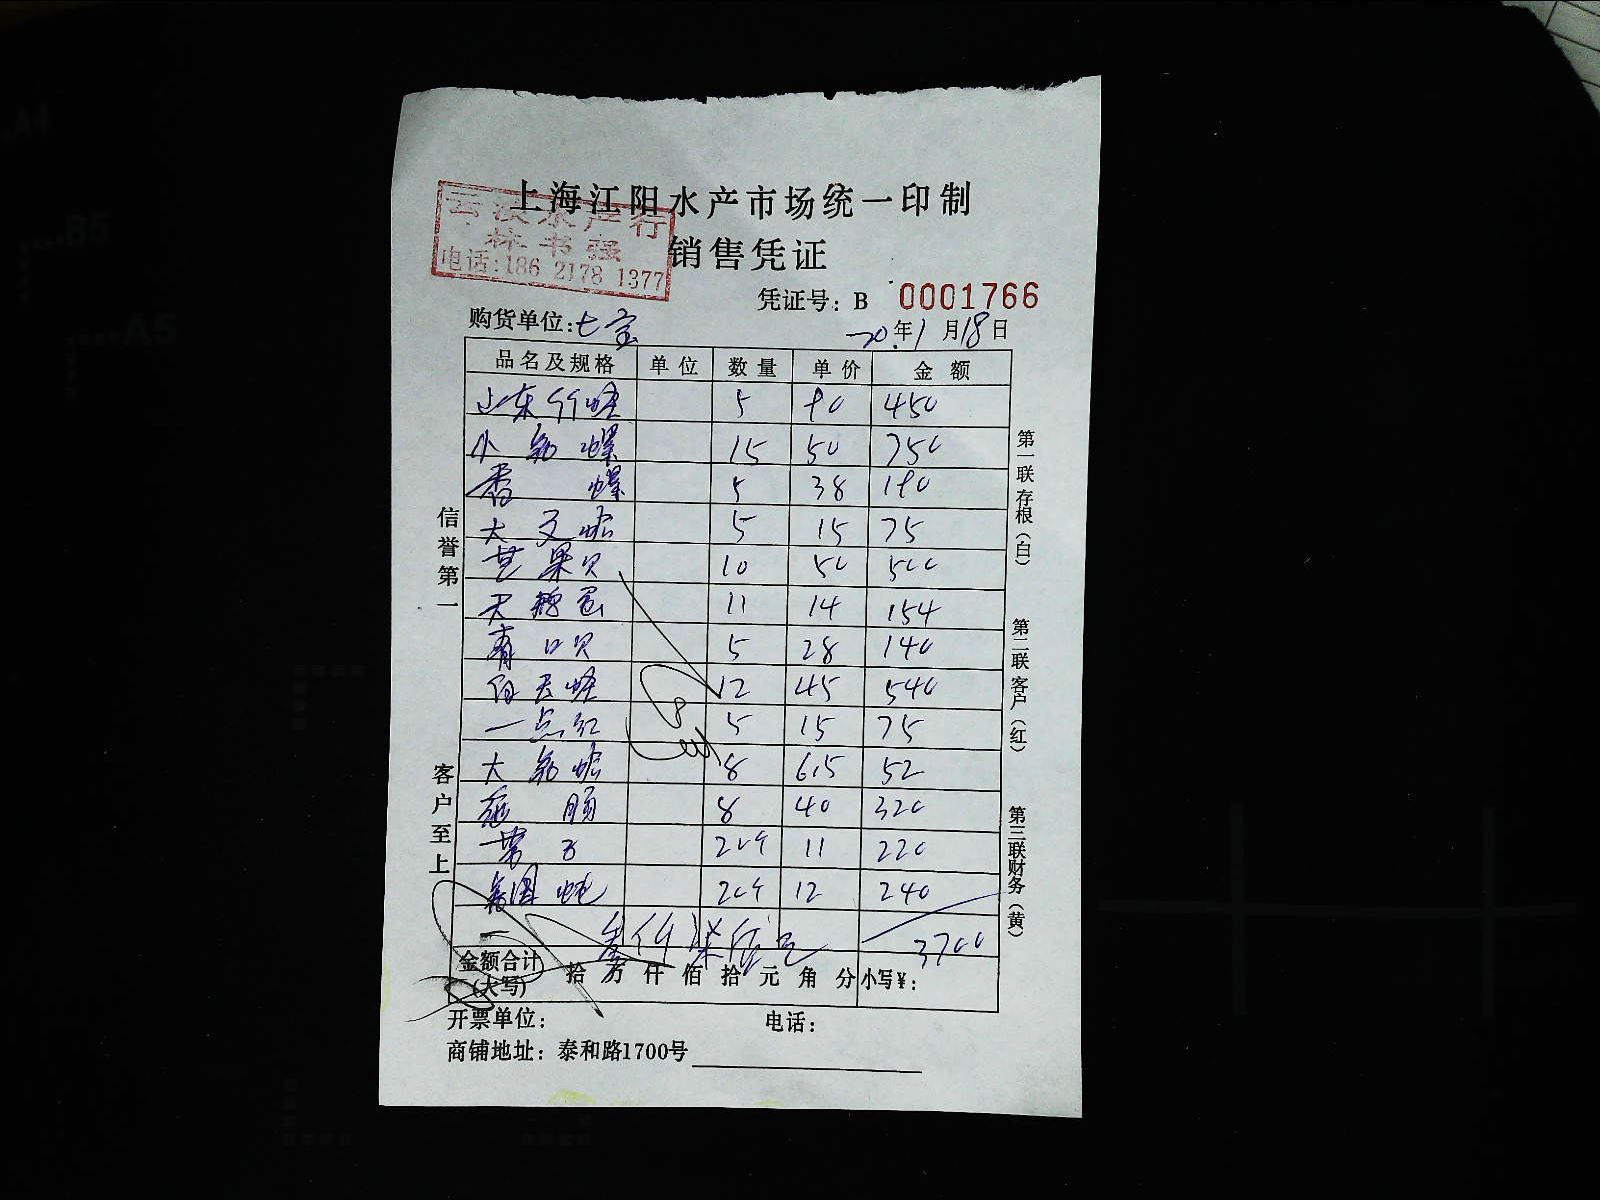 上海江阳水产市场统一印制
水产行
林书强
电话:186 2178 1377
销售凭证
凭证号: B 0001766
购货单位:七宝 20年1月18日
品名及规格 单位 数量 单价 金额
山东竹蛏 5 90 450
小 螺 15 50 750
香螺 5 38 190
大文蛤 5 15 75
芒果贝 10 50 500
11 14 154
青口贝 5 28 140
蛏 12 45 540
一点红 5 15 75
大 蛤 8 6.5 52
8 40 320
20个 11 220
20个 12 240
叁仟柒佰元 3700
金额合计
(大写) 拾 万 仟 佰 拾 元 角 分 小写¥:
开票单位: 电话:
商铺地址: 泰和路1700号
信誉第一
客户至上
第一联存根(白)
第二联客户(红)
第三联财务(黄)